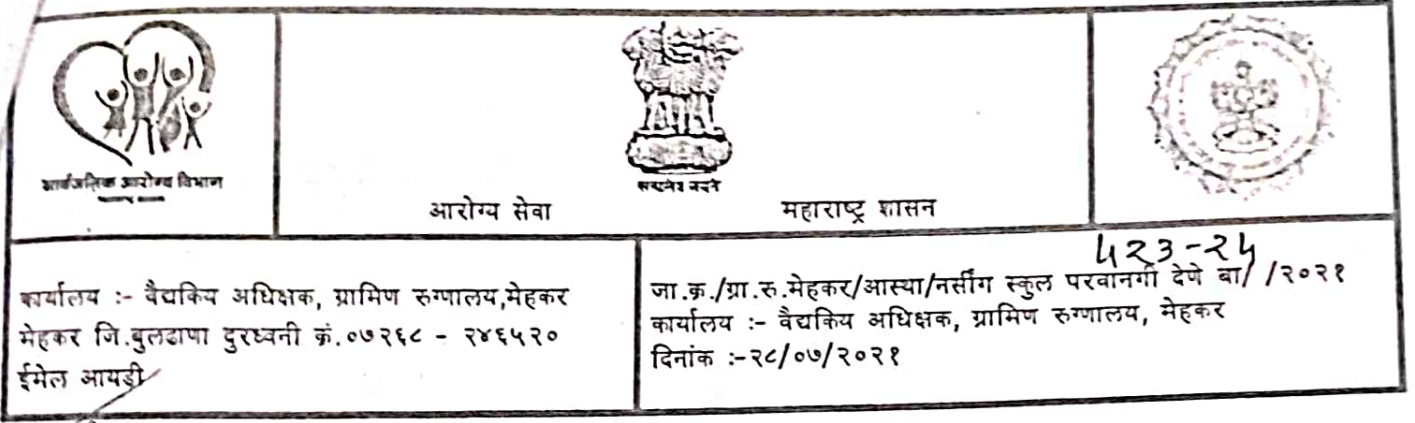 सार्वजनिक आरोग्य विभाग
सत्यमेव जयते
आरोग्य सेवा महाराष्ट्र शासन
कार्यालय :- वैद्यकिय अधिक्षक, ग्रामिण रुग्णालय,मेहकर
मेहकर जि.बुलढाणा दुरध्वनी क्रं.०७२६८ - २४६५२०
ईमेल आयडी
५२३-२५
जा.क्र./ग्रा.रु.मेहकर/आस्था/नर्सींग स्कुल परवानगी देणे बा/ /२०२१
कार्यालय :- वैद्यकिय अधिक्षक, ग्रामिण रुग्णालय, मेहकर
दिनांक :-२८/०७/२०२१